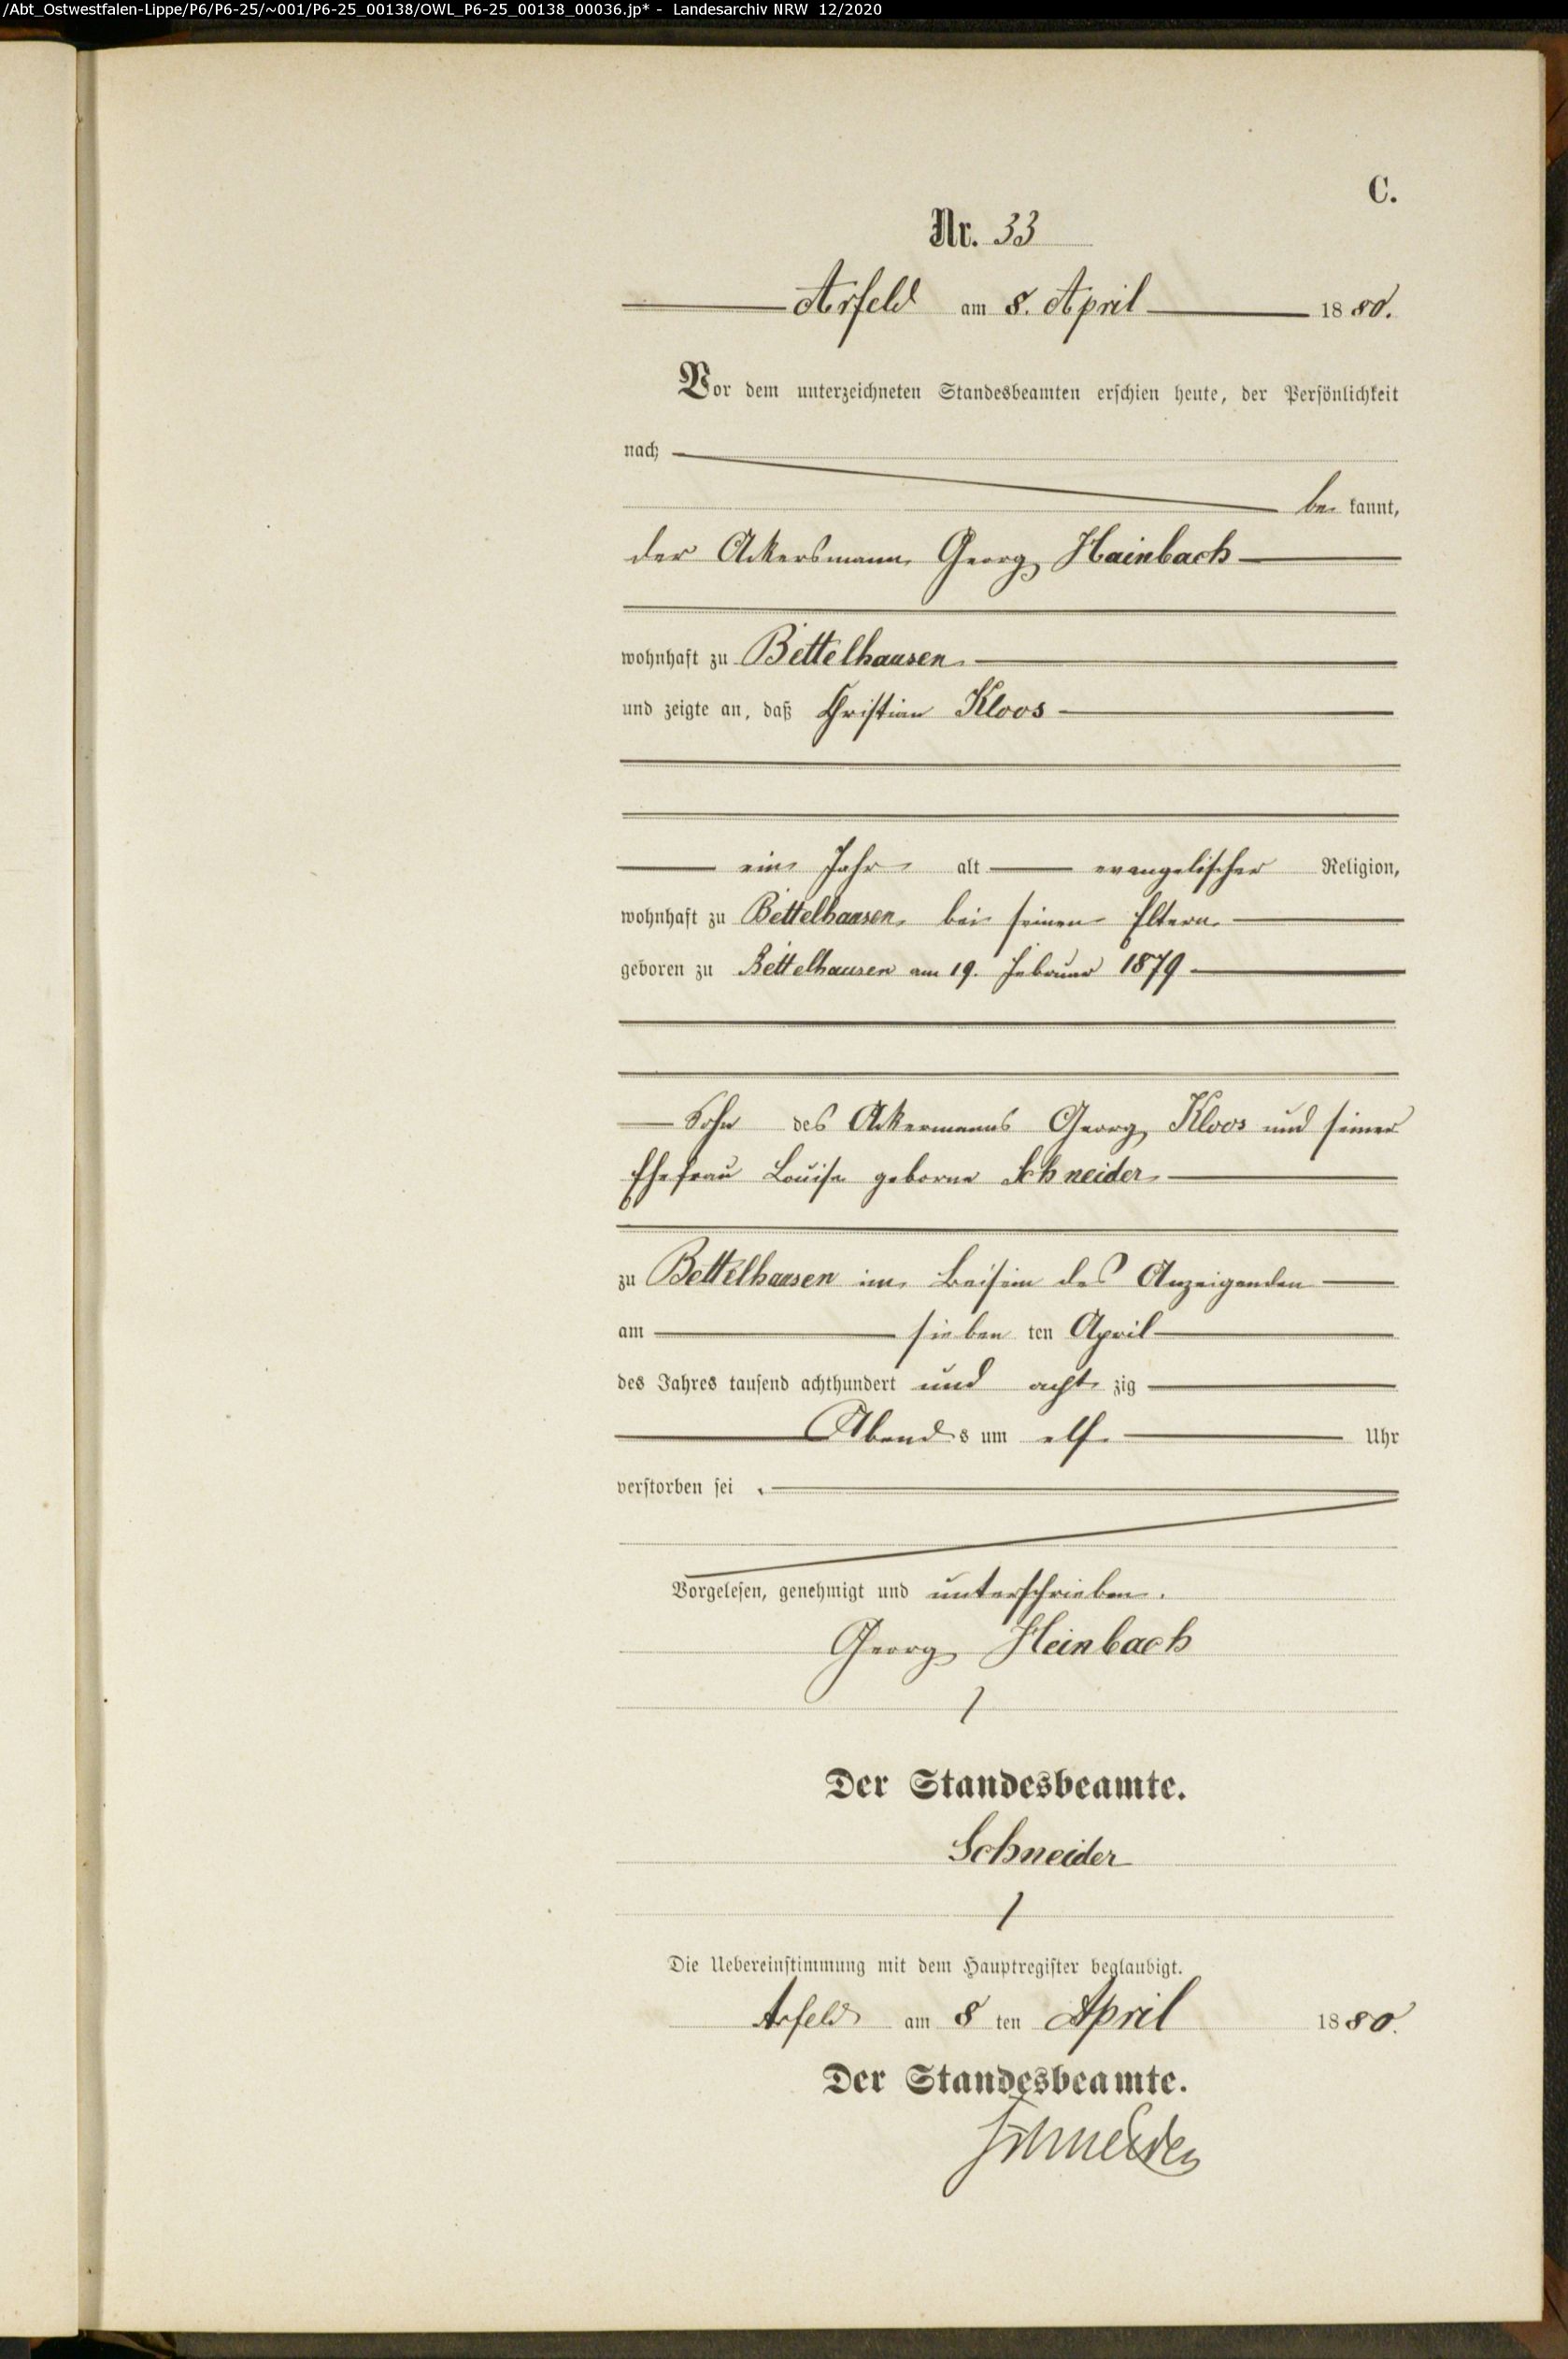 /Abt_Ostwestfalen-Lippe/P6/P6-25/~001/P6-25_00138/OWL_P6-25_00138_00036.jp* - Landesarchiv NRW 12/2020
C.
Nr. 33
Arfeld am 8. April 1880.
Vor dem unterzeichneten Standesbeamten erschien heute, der Persönlichkeit
nach
be kannt,
der Ackersmann Georg Hainbach
wohnhaft zu Bettelhausen
und zeigte an, daß Christian Kloos
ein Jahr alt evangelischer Religion,
wohnhaft zu Bettelhausen bei seinen Eltern
geboren zu Bettelhausen am 19. Februar 1879
Sohn des Ackermanns Georg Kloos und seiner
Ehefrau Louise geborne Schneider
zu Bettelhausen im Beisein des Anzeigenden
am sieben ten April
des Jahres tausend achthundert und acht zig
Abend s um elf Uhr
verstorben sei .
Vorgelesen, genehmigt und unterschrieben.
Georg Heinbach
Der Standesbeamte.
Schneider
Die Uebereinstimmung mit dem Hauptregister beglaubigt.
Arfeld am 8 ten April 1880.
Der Standesbeamte.
Schneider